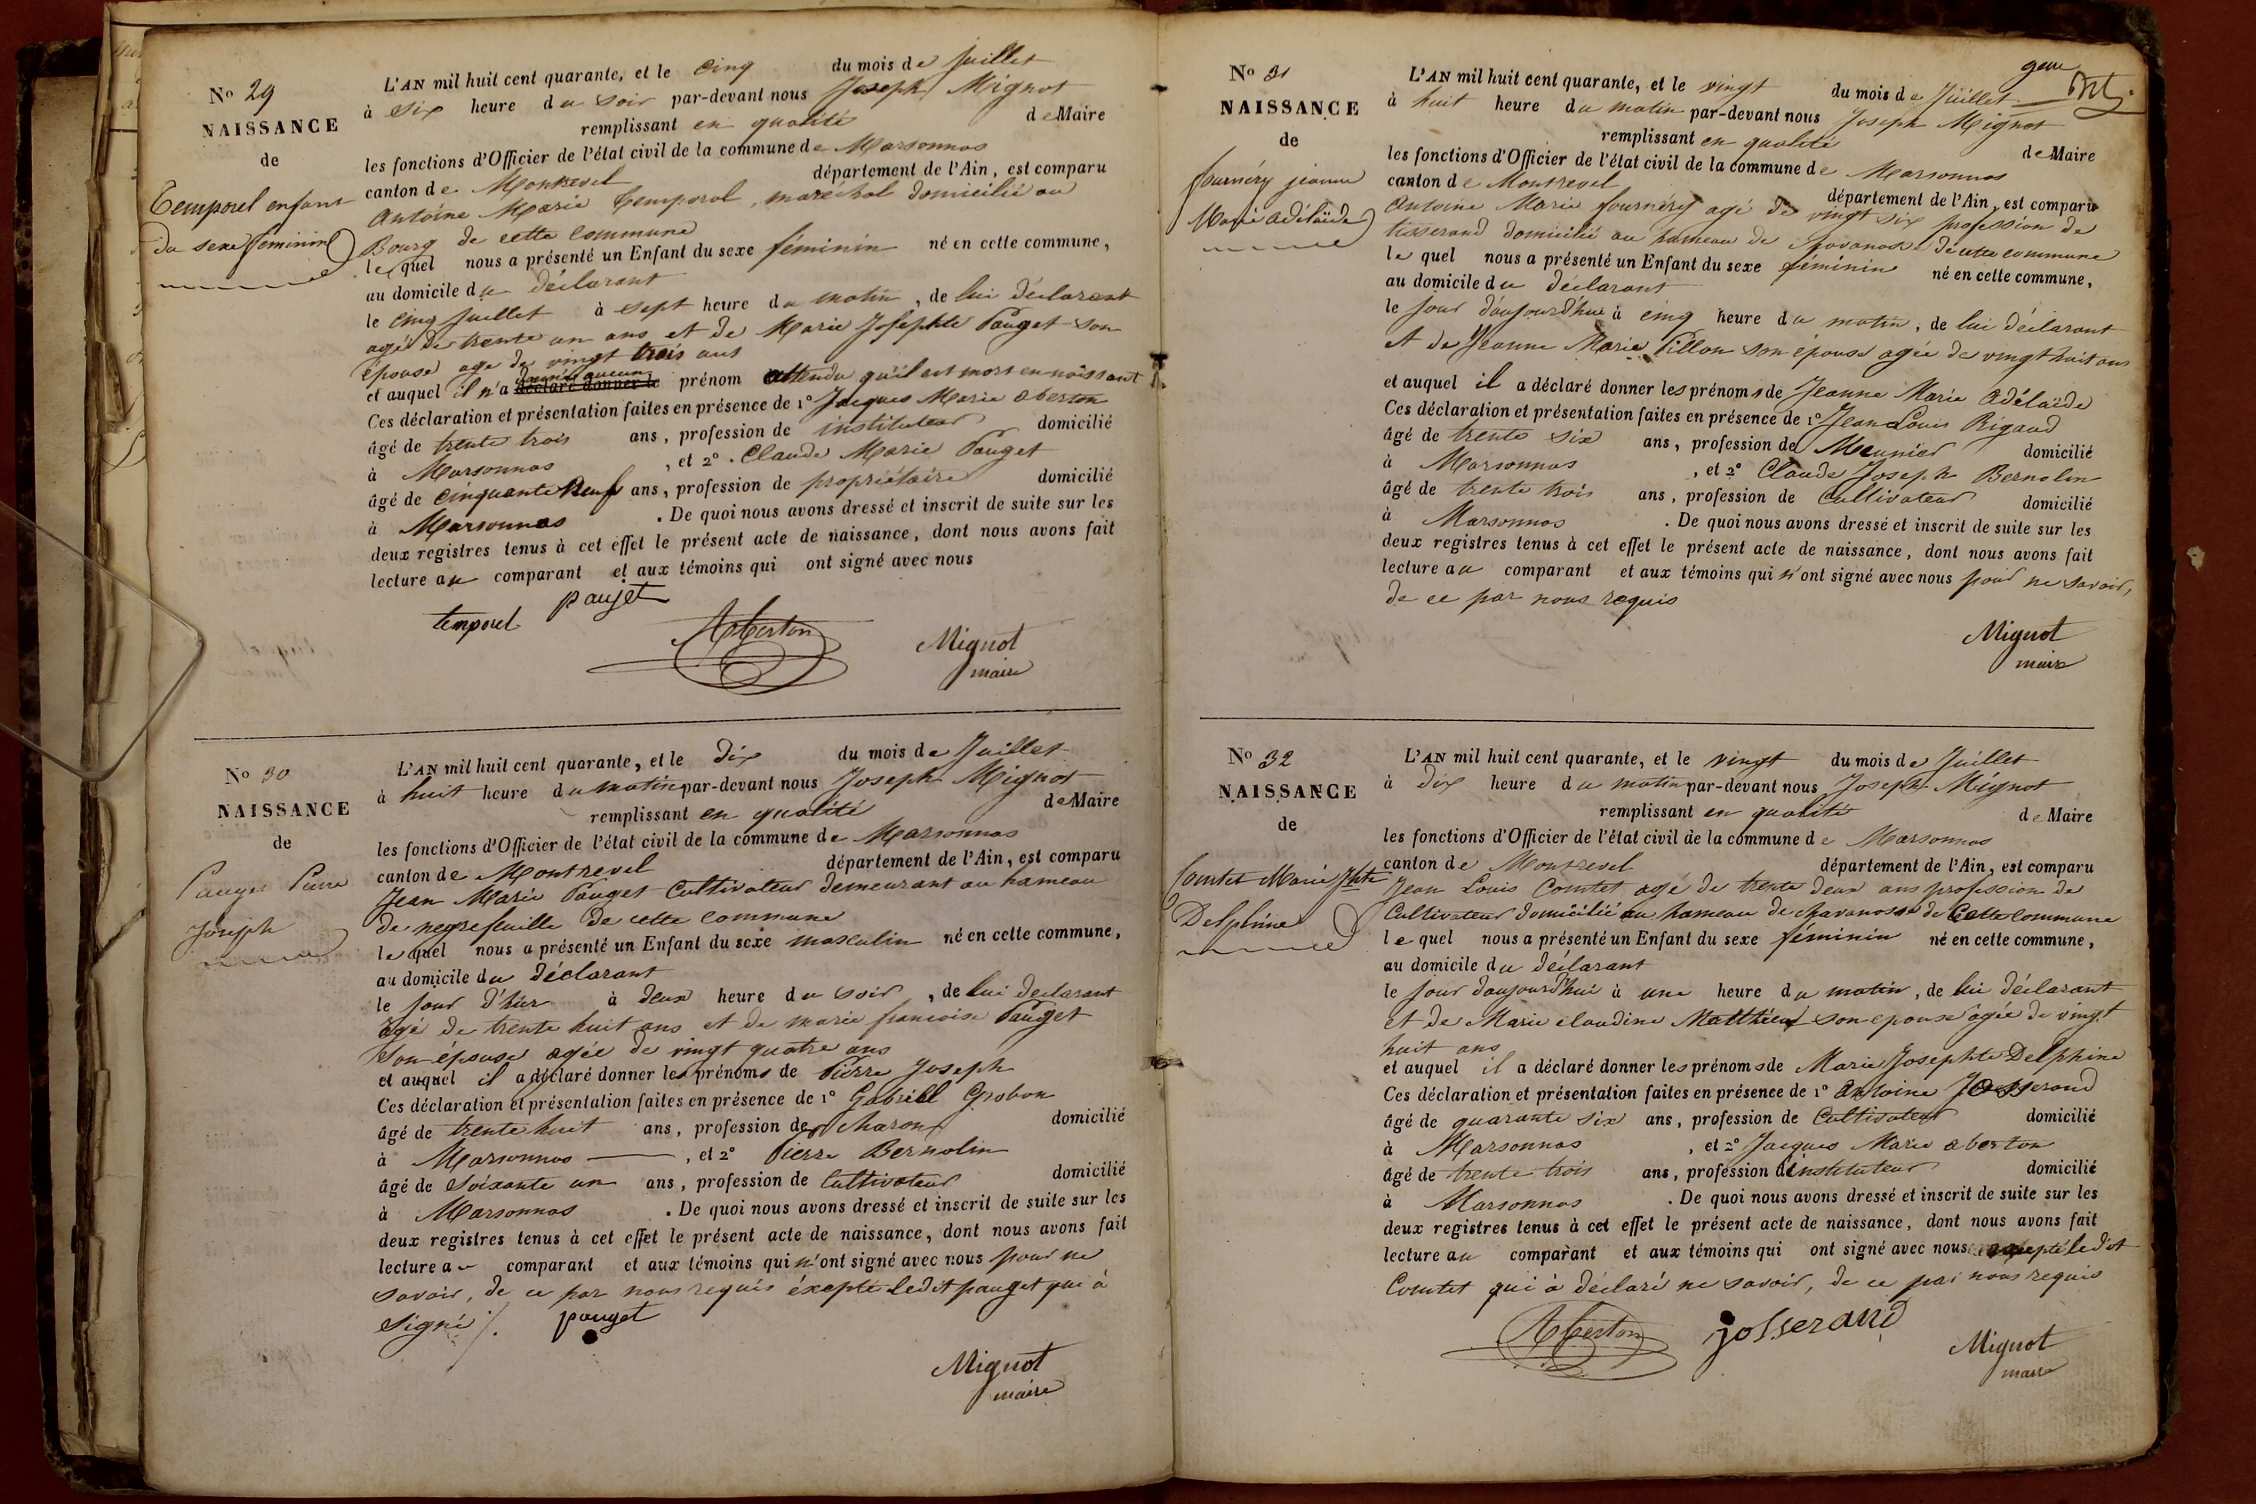 No 29
NAISSANCE
de
Temporel enfant
du sexe féminin
L'AN mil huit cent quarante, et le cinq du mois de Juillet
à six heure du soir par-devant nous Joseph Mignot
remplissant en qualité de Maire
les fonctions d'Officier de l'état civil de la commune de Marsonnas
canton de Montrevel département de l'Ain, est comparu
Antoine Marie Temporel, maréchal domicilié au
Bourg de cette commune
lequel nous a présenté un Enfant du sexe féminin né en cette commune,
au domicile du déclarant
le cinq Juillet à sept heure du matin, de lui déclarant
agé de trente un ans et de Marie Josephte Pauget son
épouse age de vingt trois ans
et auquel il n'a prénom attendu qu'il est mort en naissant
Ces déclaration et présentation faites en présence de 1° Jacques Marie Oberton
âgé de trente trois ans, profession de instituteur domicilié
à Marsonnas, et 2°. Claude Marie Pauget
âgé de cinquante neuf ans, profession de propriétaire domicilié
à Marsonnas. De quoi nous avons dressé et inscrit de suite sur les
deux registres tenus à cet effet le présent acte de naissance, dont nous avons fait
lecture au comparant et aux témoins qui ont signé avec nous
temporel paujet
Mignot
maire
No 30
NAISSANCE
de
Pauget Pierre
Joseph
L'AN mil huit cent quarante, et le dix du mois de Juillet
à huit heure du matin par-devant nous Joseph Mignot
remplissant en qualité de Maire
les fonctions d'Officier de l'état civil de la commune de Marsonnas
canton de Montrevel département de l'Ain, est comparu
Jean Marie Pauget Cultivateur demeurant au hameau
de negrefeuille de cette commune
lequel nous a présenté un Enfant du sexe masculin né en cette commune,
au domicile du déclarant
le jour d'hier à deux heure du soir, de lui déclarant
agé de trente huit ans et de marie francoise Pauget
son épouse agée de vingt quatre ans
et auquel il a déclaré donner les prénoms de Pierre Joseph
Ces déclaration et présentation faites en présence de 1° Gabriël Grobon
âgé de trente huit ans, profession de charon domicilié
à Marsonnas, et 2° Pierre Bernolin
âgé de soixante un ans, profession de Cultivateur domicilié
à Marsonnas. De quoi nous avons dressé et inscrit de suite sur les
deux registres tenus à cet effet le présent acte de naissance, dont nous avons fait
lecture au comparant et aux témoins qui n'ont signé avec nous pour ne
savoir, de ce par nous requis éxcepté ledit pauget qui à
signé /. pouget
Mignot
maire
No 31
NAISSANCE
de
fournéry jeanne
Marie adélaïde
L'AN mil huit cent quarante, et le vingt du mois de Juillet
à huit heure du matin par-devant nous Joseph Mignot
remplissant en qualité de Maire
les fonctions d'Officier de l'état civil de la commune de Marsonnas
canton de Montrevel département de l'Ain, est comparu
Antoine Marie fournéry agé de vingt six profession de
tisserand domicilié au hameau de de cette commune
lequel nous a présenté un Enfant du sexe féminin né en cette commune,
au domicile du déclarant
le jour d'aujourd'hui à cinq heure du matin, de lui déclarant
et de Jeanne Marie Pillon son épouse agée de vingt huit ans
et auquel il a déclaré donner les prénoms de Jeanne Marie adélaïde
Ces déclaration et présentation faites en présence de 1° Jean Louis Rigaud
âgé de trente six ans, profession de Meunier domicilié
à Marsonnas, et 2° Claude Joseph Bernolin
âgé de trente trois ans, profession de Cultivateur domicilié
à Marsonnas. De quoi nous avons dressé et inscrit de suite sur les
deux registres tenus à cet effet le présent acte de naissance, dont nous avons fait
lecture au comparant et aux témoins qui n'ont signé avec nous pour ne savoir,
de ce par nous requis
Mignot
maire
No 32
NAISSANCE
de
Comtet Marie Jphte
Delphine
L'AN mil huit cent quarante, et le vingt du mois de Juillet
à dix heure du matin par-devant nous Joseph Mignot
remplissant en qualité de Maire
les fonctions d'Officier de l'état civil de la commune de Marsonnas
canton de Montrevel département de l'Ain, est comparu
Jean Louis Comtet agé de trente deux ans profession de
Cultivateur domicilié au hameau de chavanosse de Cette commune
lequel nous a présenté un Enfant du sexe féminin né en cette commune,
au domicile du déclarant
le jour d'aujourd'hui à une heure du matin, de lui déclarant
et de Marie claudine Matthieu son epouse agée de vingt
huit ans
et auquel il a déclaré donner les prénoms de Marie Josephte Delphine
Ces déclaration et présentation faites en présence de 1° Antoine Josserand
âgé de quarante six ans, profession de Cultivateur domicilié
à Marsonnas, et 2° Jacques Marie oberton
âgé de trente trois ans, profession d'instituteur domicilié
à Marsonnas. De quoi nous avons dressé et inscrit de suite sur les
deux registres tenus à cet effet le présent acte de naissance, dont nous avons fait
lecture au comparant et aux témoins qui ont signé avec nous excepté ledit
Comtet qui à déclaré ne savoir, de ce par nous requis
josserand
Mignot
maire